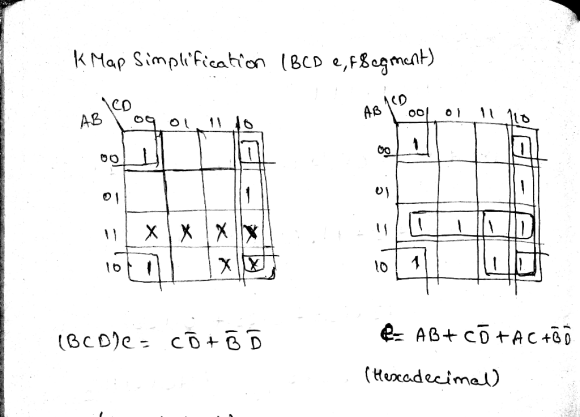 K Map Simplification (BCD e, F Segment)
AB \ CD 00 01 11 10
00 1 1
01 1
11 X X X X
10 1 X X
AB \ CD 00 01 11 10
00 1 1
01 1
11 1 1 1 1
10 1 1 1
(BCD)e = CD̅ + B̅ D̅
e = AB + CD̅ + AC + B̅D̅
(Hexadecimal)